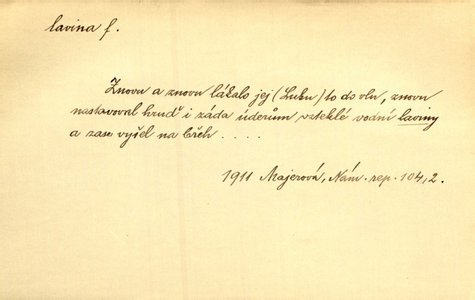 lavina f.
Znovu a znovu lákalo jej (Luku) to do vln, znovu
nastavoval hruď i záda úderům vzteklé vodní laviny
a zase vyšel na břeh . . . .
1911 Majerová, Nám. rep. 104, 2.